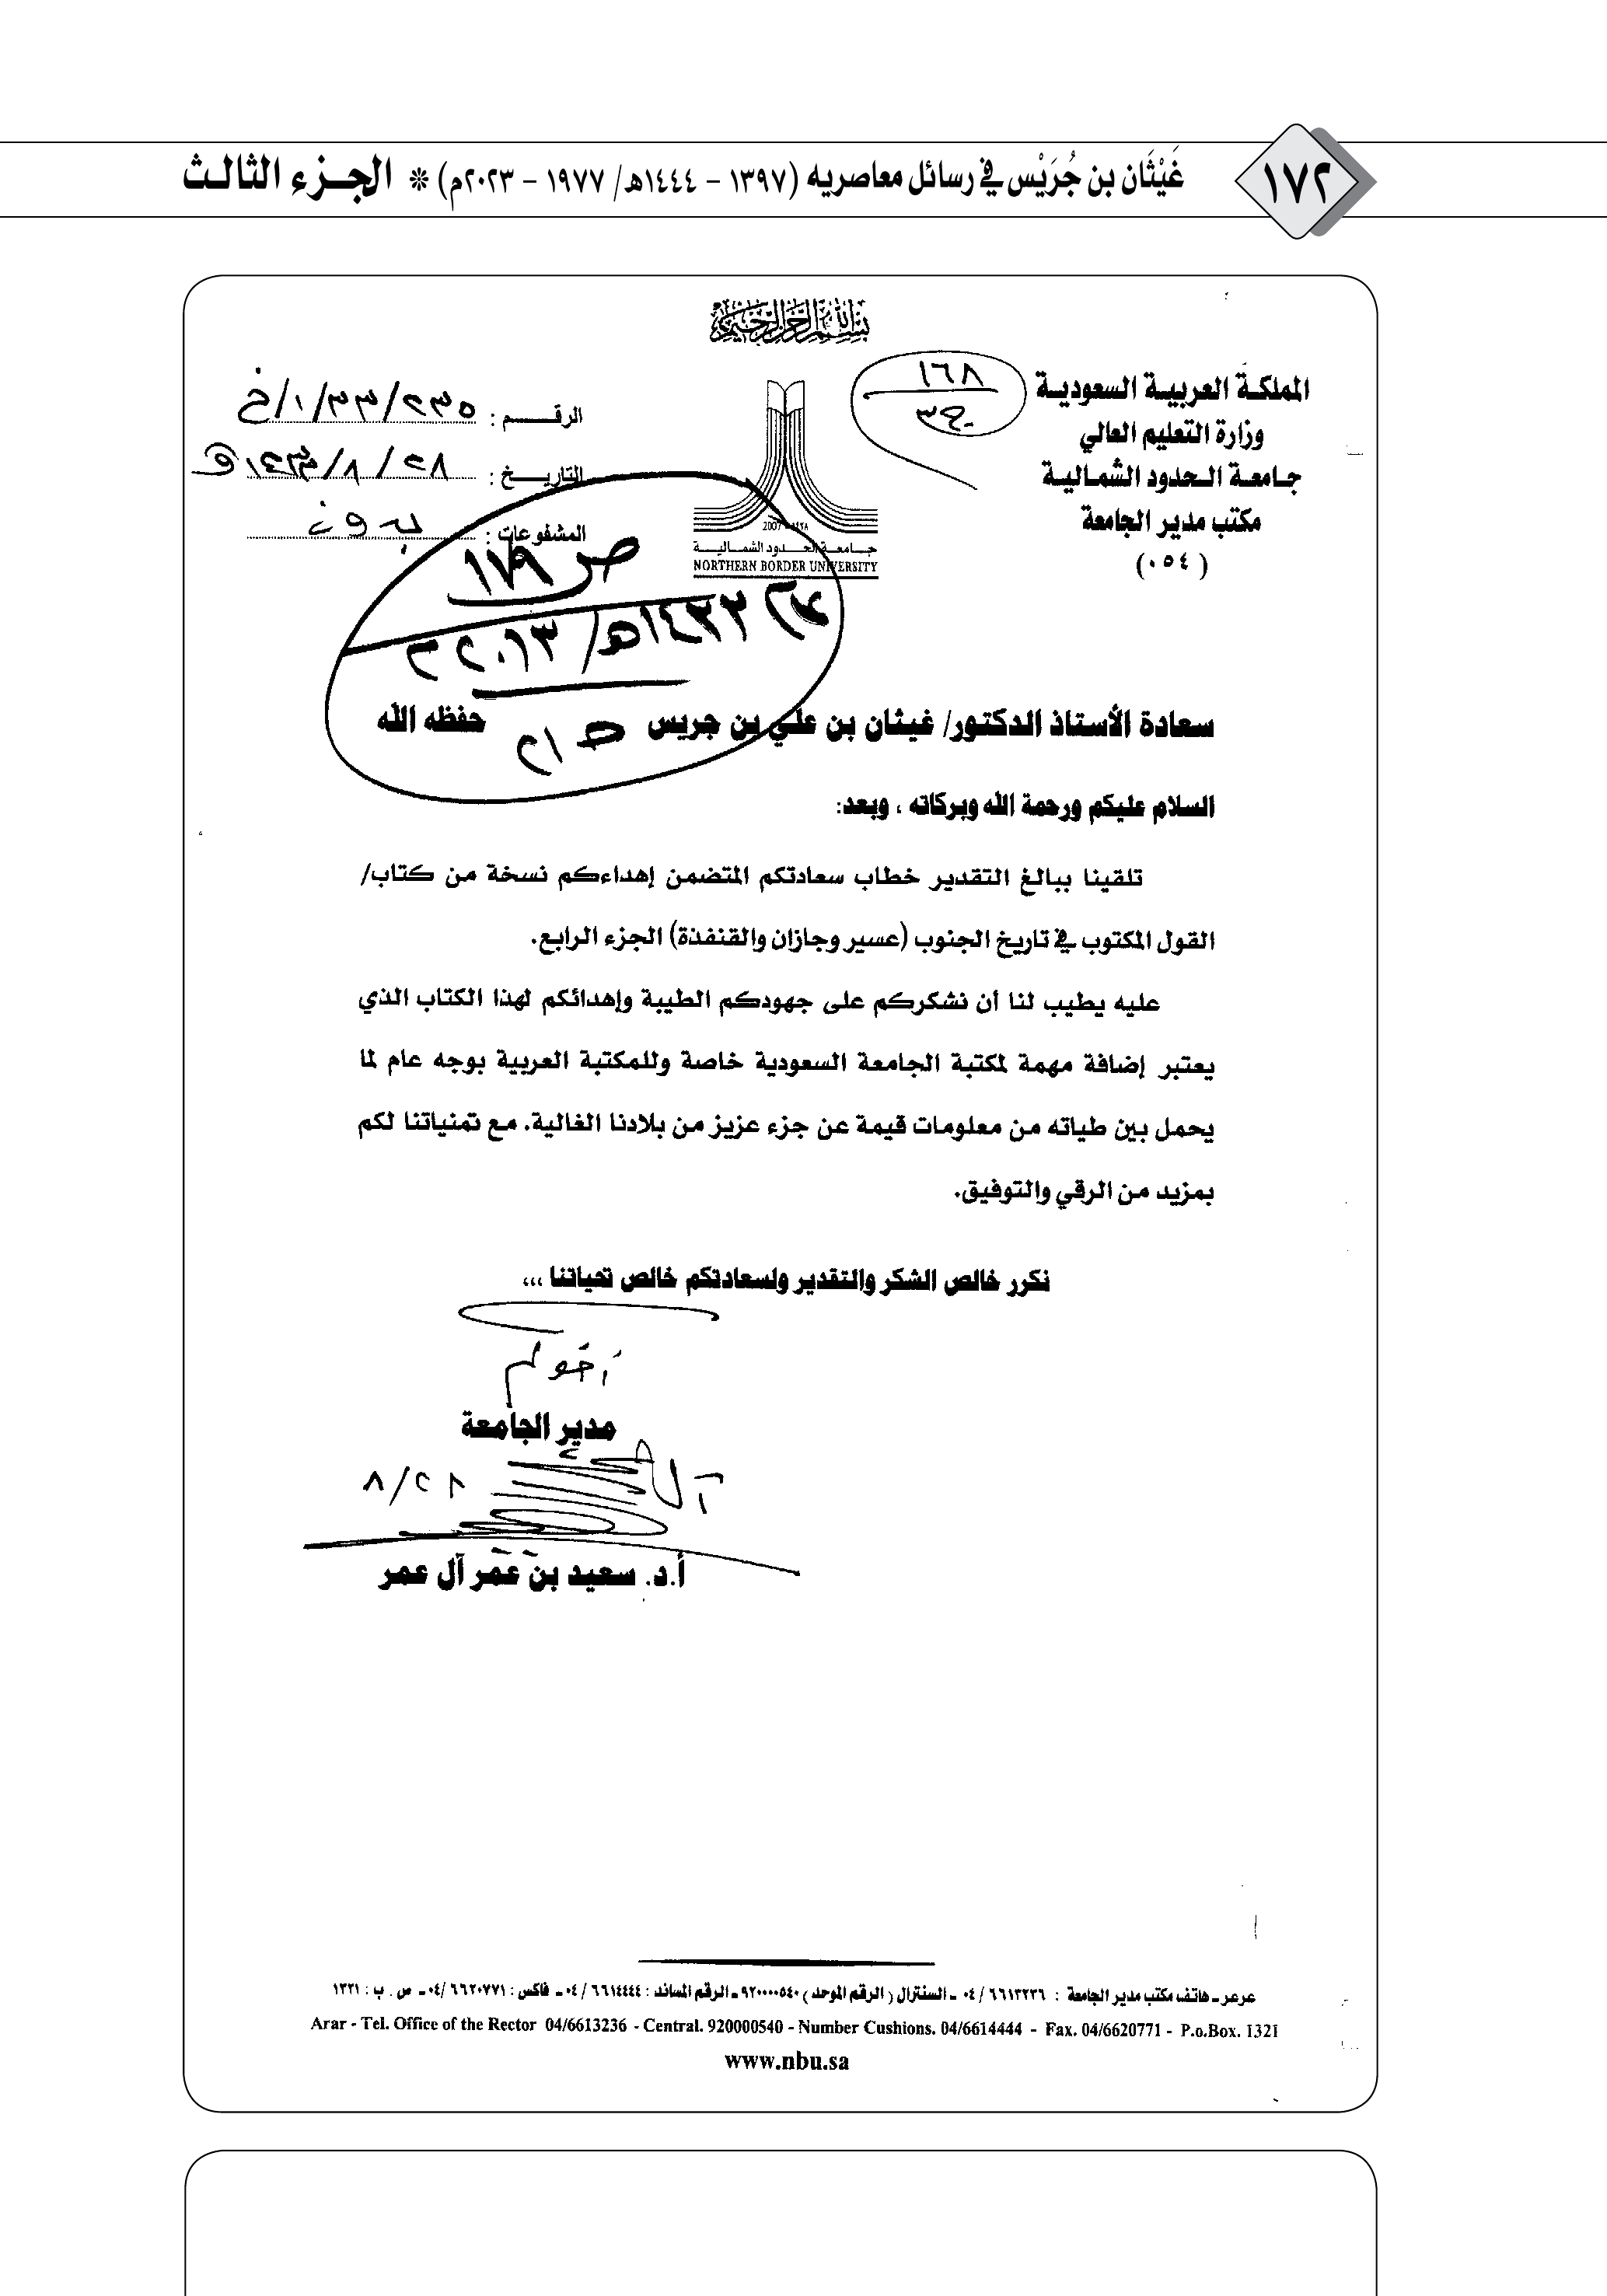 ١٧٢
غَيْثَان بن جُرَيْس في رسائل معاصريه (١٣٩٧ - ١٤٤٤هـ/ ١٩٧٧ - ٢٠٢٣م) * الجـزء الثالـث
بسم الله الرحمن الرحيم
المملكة العربية السعودية
وزارة التعليم العالي
جامعة الحدود الشمالية
مكتب مدير الجامعة
(٠٥٤)
١٦٨
جـ٣
2007 - ١٤٢٨
جامعة الحدود الشمالية
NORTHERN BORDER UNIVERSITY
الرقـــم :
التاريـــخ :
المشفوعات : بدون
ص ١٧٩
سعادة الأستاذ الدكتور/ غيثان بن علي بن جريس حفظه الله
السلام عليكم ورحمة الله وبركاته ، وبعد:
تلقينا ببالغ التقدير خطاب سعادتكم المتضمن إهداءكم نسخة من كتاب/
القول المكتوب في تاريخ الجنوب (عسير وجازان والقنفذة) الجزء الرابع.
عليه يطيب لنا أن نشكركم على جهودكم الطيبة وإهدائكم لهذا الكتاب الذي
يعتبر إضافة مهمة لمكتبة الجامعة السعودية خاصة وللمكتبة العربية بوجه عام لما
يحمل بين طياته من معلومات قيمة عن جزء عزيز من بلادنا الغالية. مع تمنياتنا لكم
بمزيد من الرقي والتوفيق.
نكرر خالص الشكر والتقدير ولسعادتكم خالص تحياتنا ،،،
أخوكم
مدير الجامعة
أ.د. سعيد بن عمر آل عمر
عرعر ـ هاتف مكتب مدير الجامعة : ٦٦١٣٢٣٦ / ٠٤ ـ السنترال ( الرقم الموحد ) ٩٢٠٠٠٠٥٤٠ ـ الرقم المساند : ٦٦١٤٤٤٤ / ٠٤ ـ فاكس : ٦٦٢٠٧٧١ /٠٤ ـ ص . ب : ١٣٢١
Arar - Tel. Office of the Rector 04/6613236 - Central. 920000540 - Number Cushions. 04/6614444 - Fax. 04/6620771 - P.o.Box. 1321
www.nbu.sa